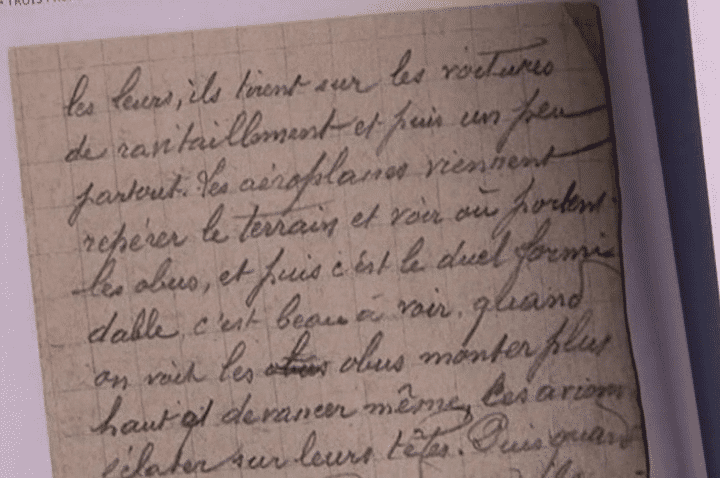 les leurs, ils tirent sur les voitures
de ravitaillement et puis un peu
partout. Les aéroplanes viennent
repérer le terrain et voir où portent
les obus, et puis c'est le duel formi-
dable, c'est beau à voir, quand
on voit les obus monter plus
haut et devancer même, les avions
éclater sur leurs têtes. Puis quand